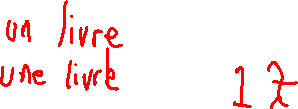 un livre
une livre
1 Z